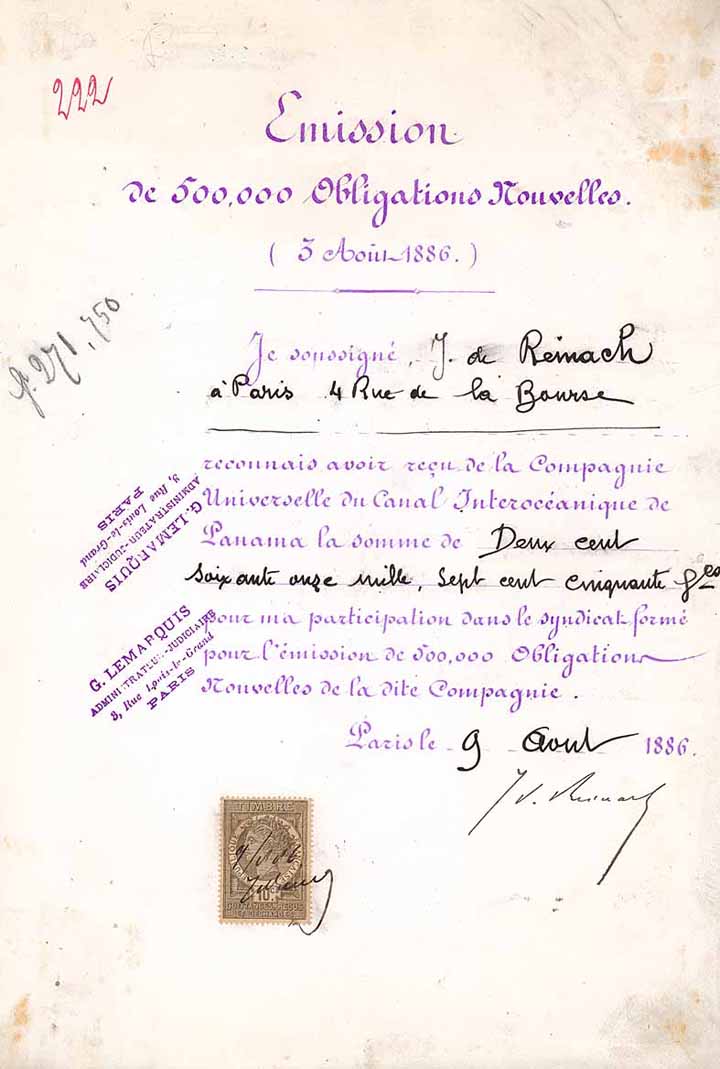 222
Emission
de 500,000 Obligations Nouvelles.
( 3 Août 1886. )
f. 271,750
Je soussigné, J. de Reinach
à Paris 4 Rue de la Bourse
reconnais avoir reçu de la Compagnie
Universelle du Canal Interocéanique de
Panama la somme de Deux cent
soixante onze mille, sept cent cinquante fcs
pour ma participation dans le syndicat formé
pour l'émission de 500,000 Obligations
Nouvelles de la dite Compagnie.
Paris le 9 Août 1886.
J. d. Reinach
G. LEMARQUIS
ADMINISTRATEUR-JUDICIAIRE
3, Rue Louis-le-Grand
PARIS
G. LEMARQUIS
ADMINISTRATEUR-JUDICIAIRE
3, Rue Louis-le-Grand
PARIS
TIMBRE
10c
QUITTANCES, REÇUS
ET DÉCHARGES